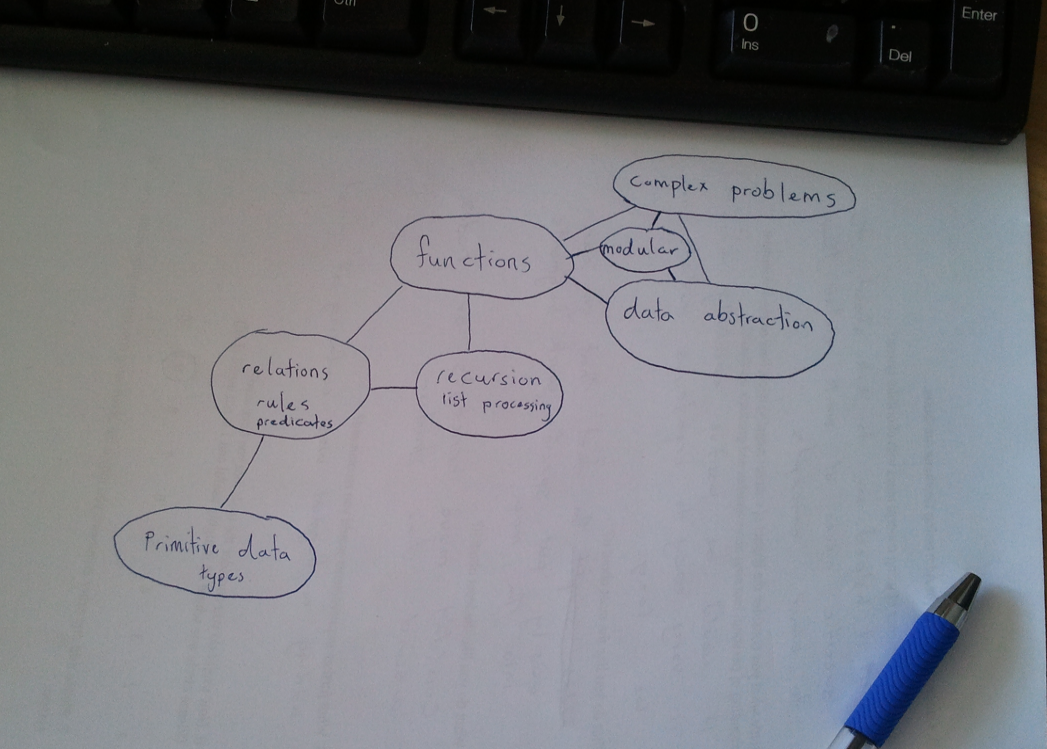 Ctrl
←
↓
→
0
Ins
.
Del
Enter
complex problems
functions
modular
data abstraction
relations
rules
predicates
recursion
list processing
Primitive data
types